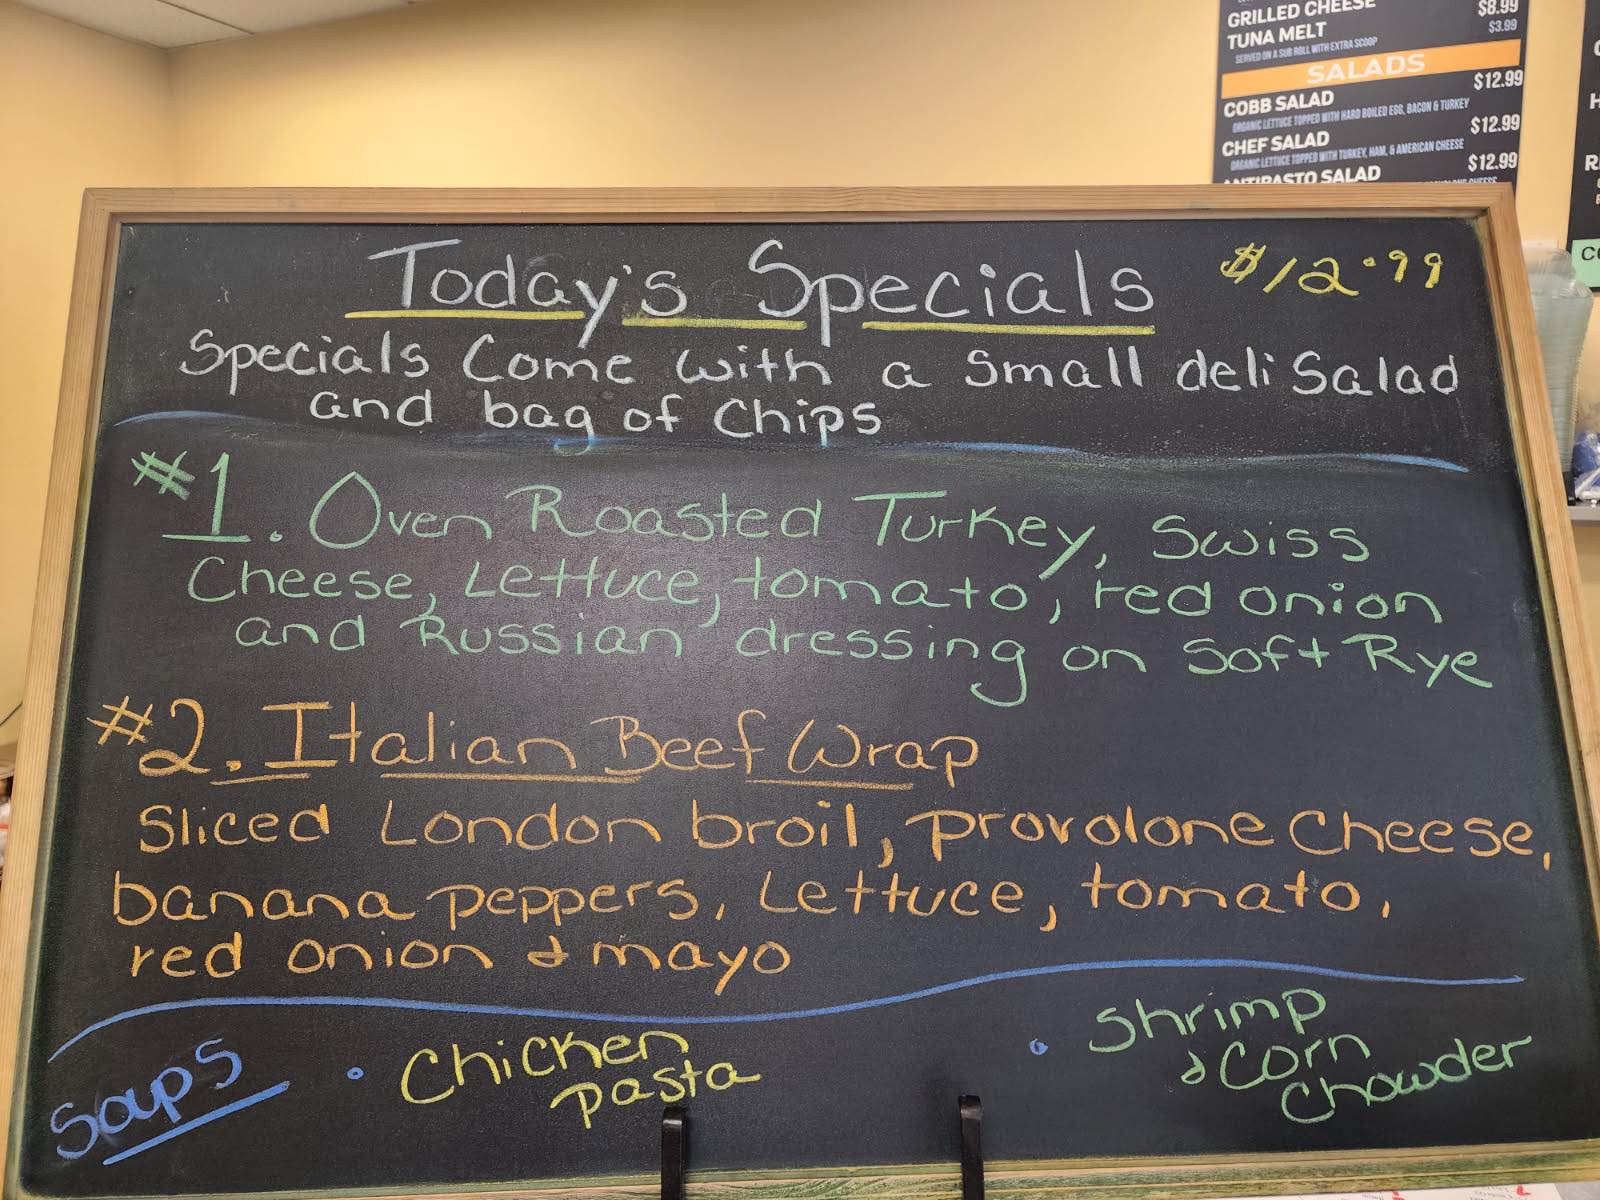 GRILLED CHEESE $8.99
TUNA MELT $3.99
SERVED ON A SUB ROLL WITH EXTRA SCOOP
SALADS
COBB SALAD $12.99
ORGANIC LETTUCE TOPPED WITH HARD BOILED EGG, BACON & TURKEY
CHEF SALAD $12.99
ORGANIC LETTUCE TOPPED WITH TURKEY, HAM, & AMERICAN CHEESE
ANTIPASTO SALAD $12.99
Today's Specials $12.99
Specials Come with a Small deli Salad
and bag of Chips
#1. Oven Roasted Turkey, Swiss
Cheese, Lettuce, tomato, red onion
and Russian dressing on Soft Rye
#2. Italian Beef Wrap
Sliced London broil, provolone Cheese,
banana peppers, Lettuce, tomato,
red onion & mayo
Soups • Chicken
pasta
• Shrimp
& Corn
Chowder